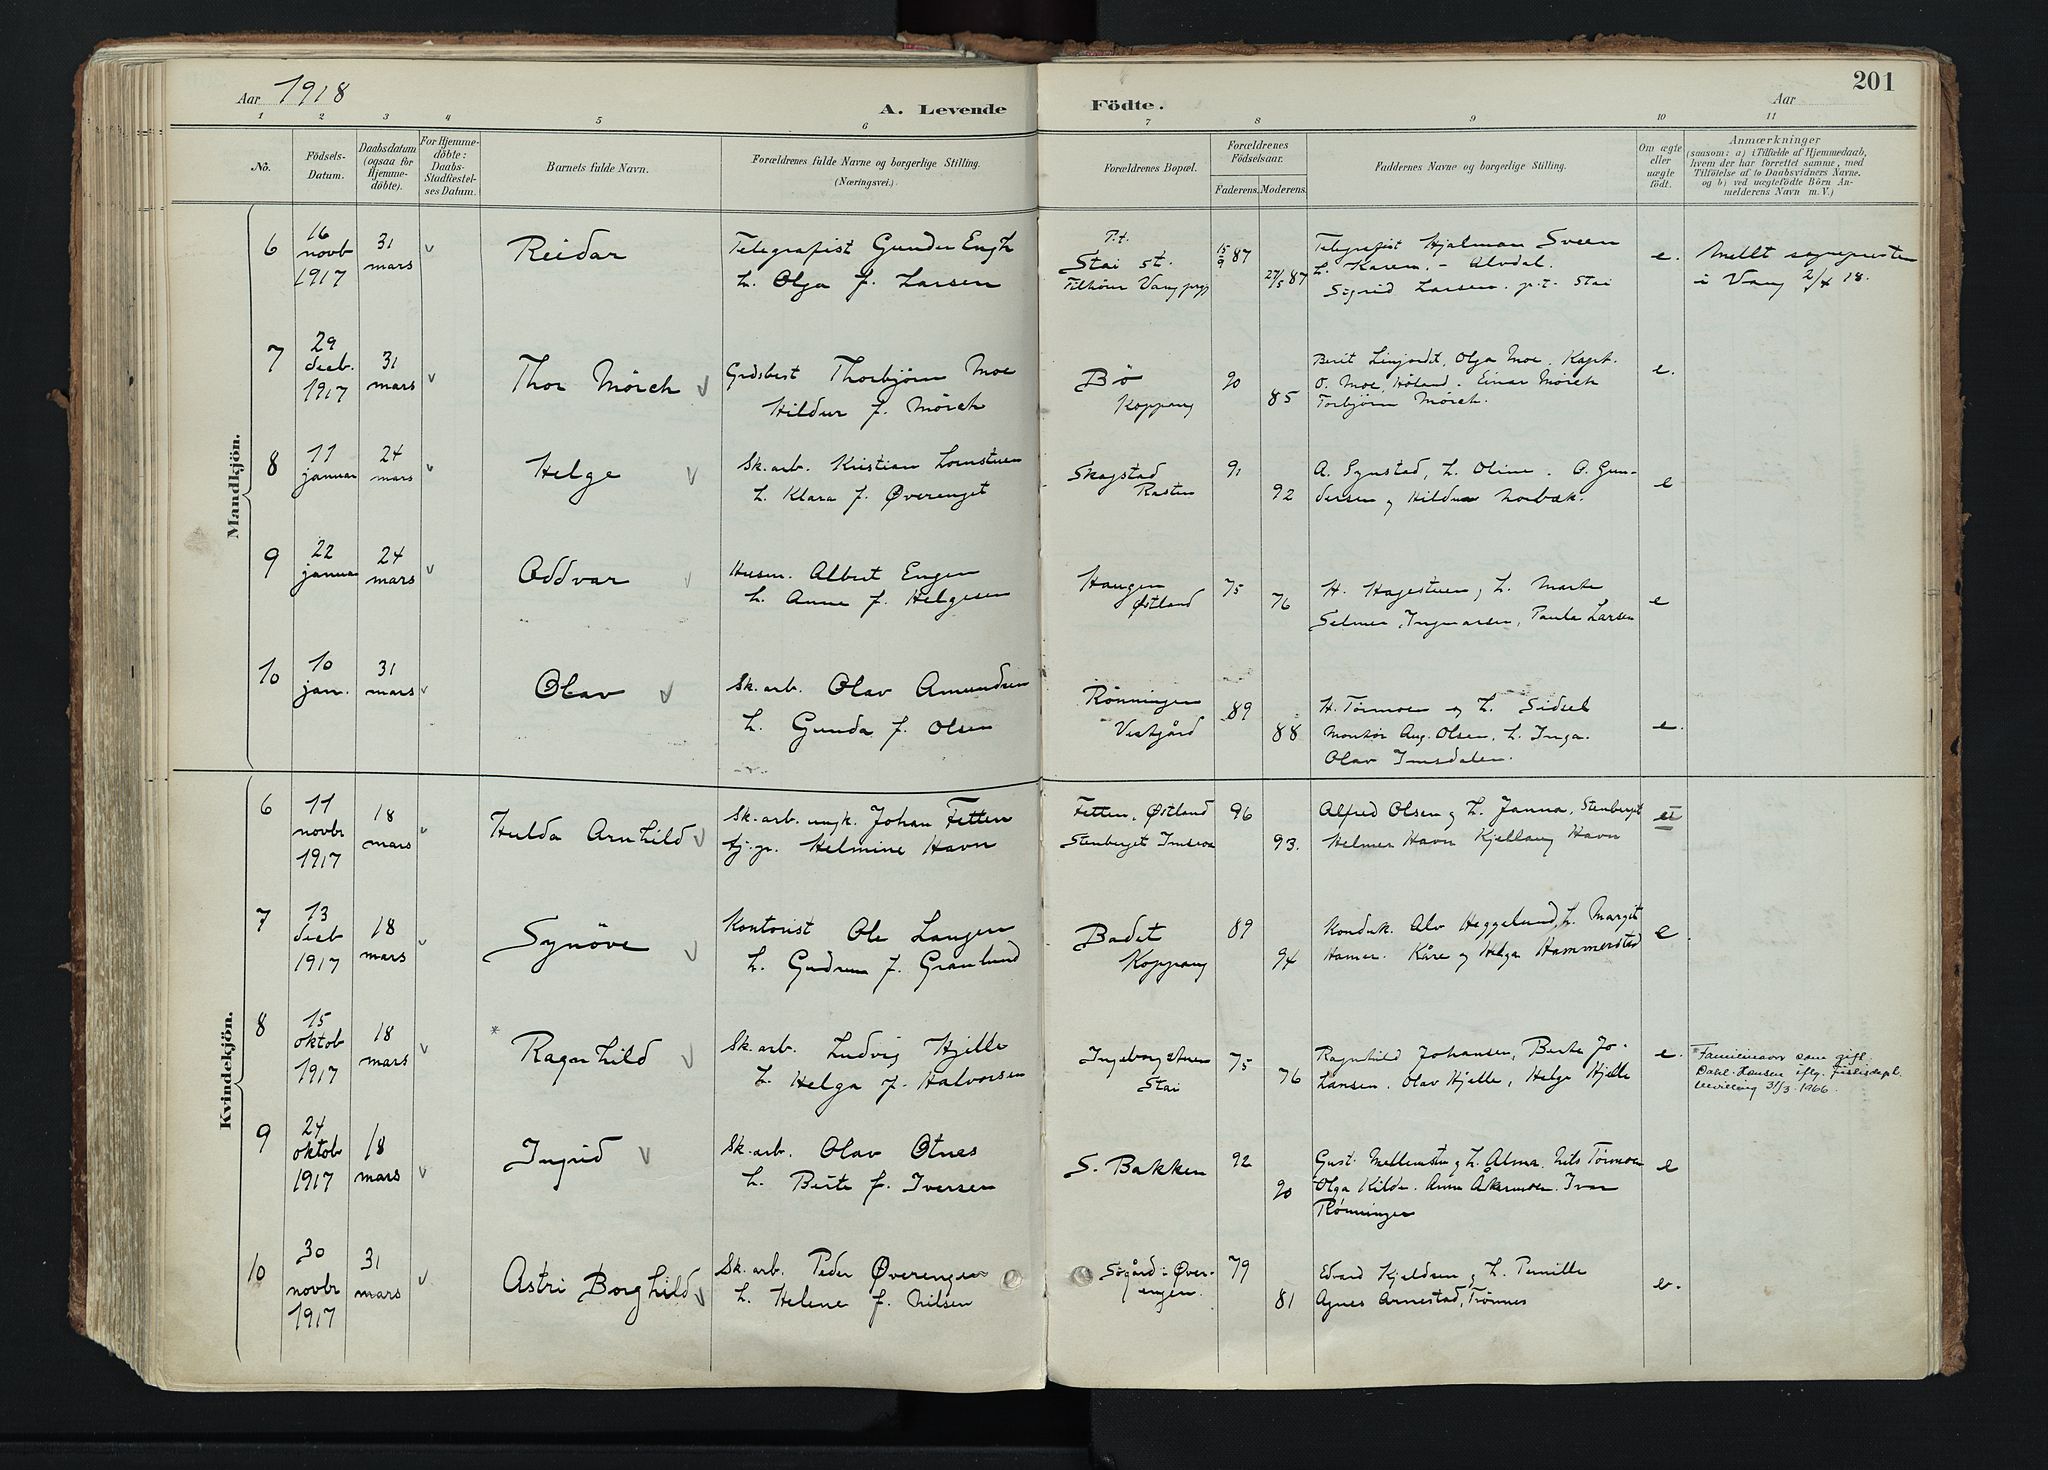 Aar 1918
A. Levende
Födte.
Aar
201
1 2 3 4 5 6 7 8 9 10 11
No.
Födsels-
Datum.
Daabsdatum
(ogsaa for
Hjemme-
döbte).
For Hjemme-
döbte:
Daabs-
Stadfæstel-
ses Datum.
Barnets fulde Navn.
Forældrenes fulde Navne og borgerlige Stilling.
(Næringsvei.)
Forældrenes Bopæl.
Forældrenes
Födselsaar.
Faderens. Moderens.
Faddernes Navne og borgerlige Stilling.
Om ægte
eller
uægte
födt.
Anmærkninger
(saasom: a) i Tilfælde af Hjemmedaab,
hvem der har forrettet samme, med
Tilföielse af to Daabsvidners Navne,
og b) ved uægtefödte Börn An-
melderens Navn m. V.)
Mandkjön.
6
16
novb
1917
31
mars
Reidar
Telegrafist Gunder Engh
h. Olga f. Larsen
P.t.
Stai st.
Tilhörer Vang prgj
15/9 87
27/5 87
Telegrafist Hjalmar Sveen
h. Karen - Alvdal.
Sigrid Larsen. p.t. Stai
e.
Meldt sognepresten
i Vang 2/4 18.
7
29
decb.
1917
31
mars
Thor Mörch
Grdsbest Thorbjörn Moe
Hildur f. Mörch
Bö
Koppang
90
85
Berit Linjordet, Olga Moe, Kapt.
O. Moe, Höland. Einar Mörch
Torbjörn Mörch.
e.
8
11
januar
24
mars
Helge
Sk.arb. Kristian Lomstuen
h. Klara f. Øverenget
Skogstad
Rasten
91
92
A. Synstad, h. Oline. O. Gun-
dersen og Hildur Norbæk.
e
9
22
januar
24
mars
Oddvar
Husm. Albert Engen
h. Anne f. Helgesen
Haugen
Østland
75
76
H. Hagestuen, h. Marte
Selmer Ingvarsen, Paula Larsen
e
10
10
jan.
31
mars
Olav
Sk.arb. Olav Amundsen
h. Gunda f. Olsen
Rönningen
Vestgård
89
88
H. Törmoen og h. Sidsel
Montör Aug. Olsen, h. Inga.
Olav Imsdalen.
e.
Kvindekjön.
6
11
novbr
1917
18
mars
Hulda Arnhild
Sk.arb. ungk. Johan Fetten
tj.p. Helmine Havn
Fetten, Østland
Stenberget Imsroa
96
93.
Alfred Olsen og h. Janna, Stenberget
Helmer Havn Kjellaug Havn
7
13
decb
1917
18
mars
Synöve
Kontorist Ole Langen
h. Gudrun f. Granlund
Badet
Koppang
89
94
Konduk. Alv Heggelund, h. Margit
Hamar. Kåre og Helga Hammerstad
e.
8
15
oktob
1917
18
mars
* Ragnhild
Sk.arb. Ludvig Hjelle
h. Helga f. Halvorsen
Ingeborgstuen
Stai
75
76
Ragnhild Johansen, Berte Jo-
hansen. Olav Hjelle, Helge Hjelle
e.
* Familienavn som gift:
Dahl-Hansen iflg. Justisdepl.
bevilling 31/3 1966.
9
24
oktob
1917
18
mars
Ingrid
Sk.arb. Olav Otnes
h. Berte f. Iversen
S. Bakken
92
90
Gust. Mellemsten og h. Alma. Nils Törmoen
Olga Kilde. Anna Åkermoen. Ivar
Rönningen
e
10
30
novbr
1917
31
mars
Astri Borghild
Sk.arb. Peder Øverengen
h. Helene f. Nilsen
Sögård i Över-
engen.
79
81
Edvard Kjeldsen og h. Pernille
Agnes Arnestad, Trönnes
e.